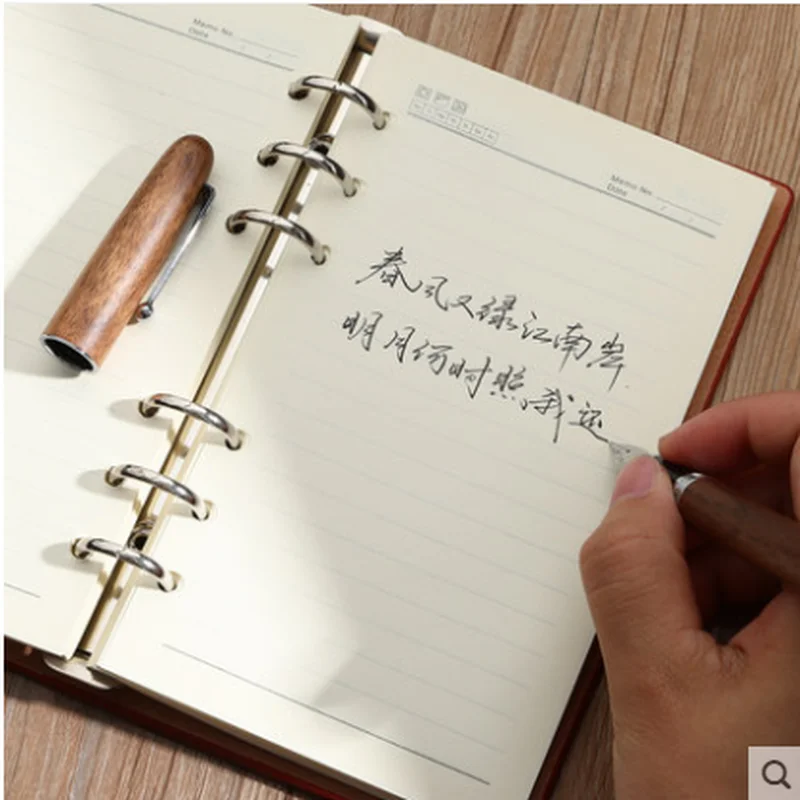 Memo No.
Date / /
Memo No.
Date / /
春风又绿江南岸
明月何时照我还